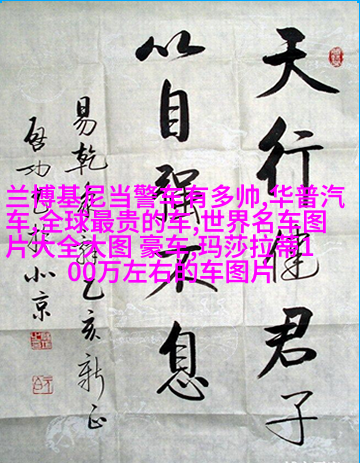 天行健君子
以自强不息
易乾象辞乙亥新正
啟功书於北京
兰博基尼当警车有多帅,华普汽
车,全球最贵的车,世界名车图
片大全大图 豪车,玛莎拉蒂1
00万左右的车图片